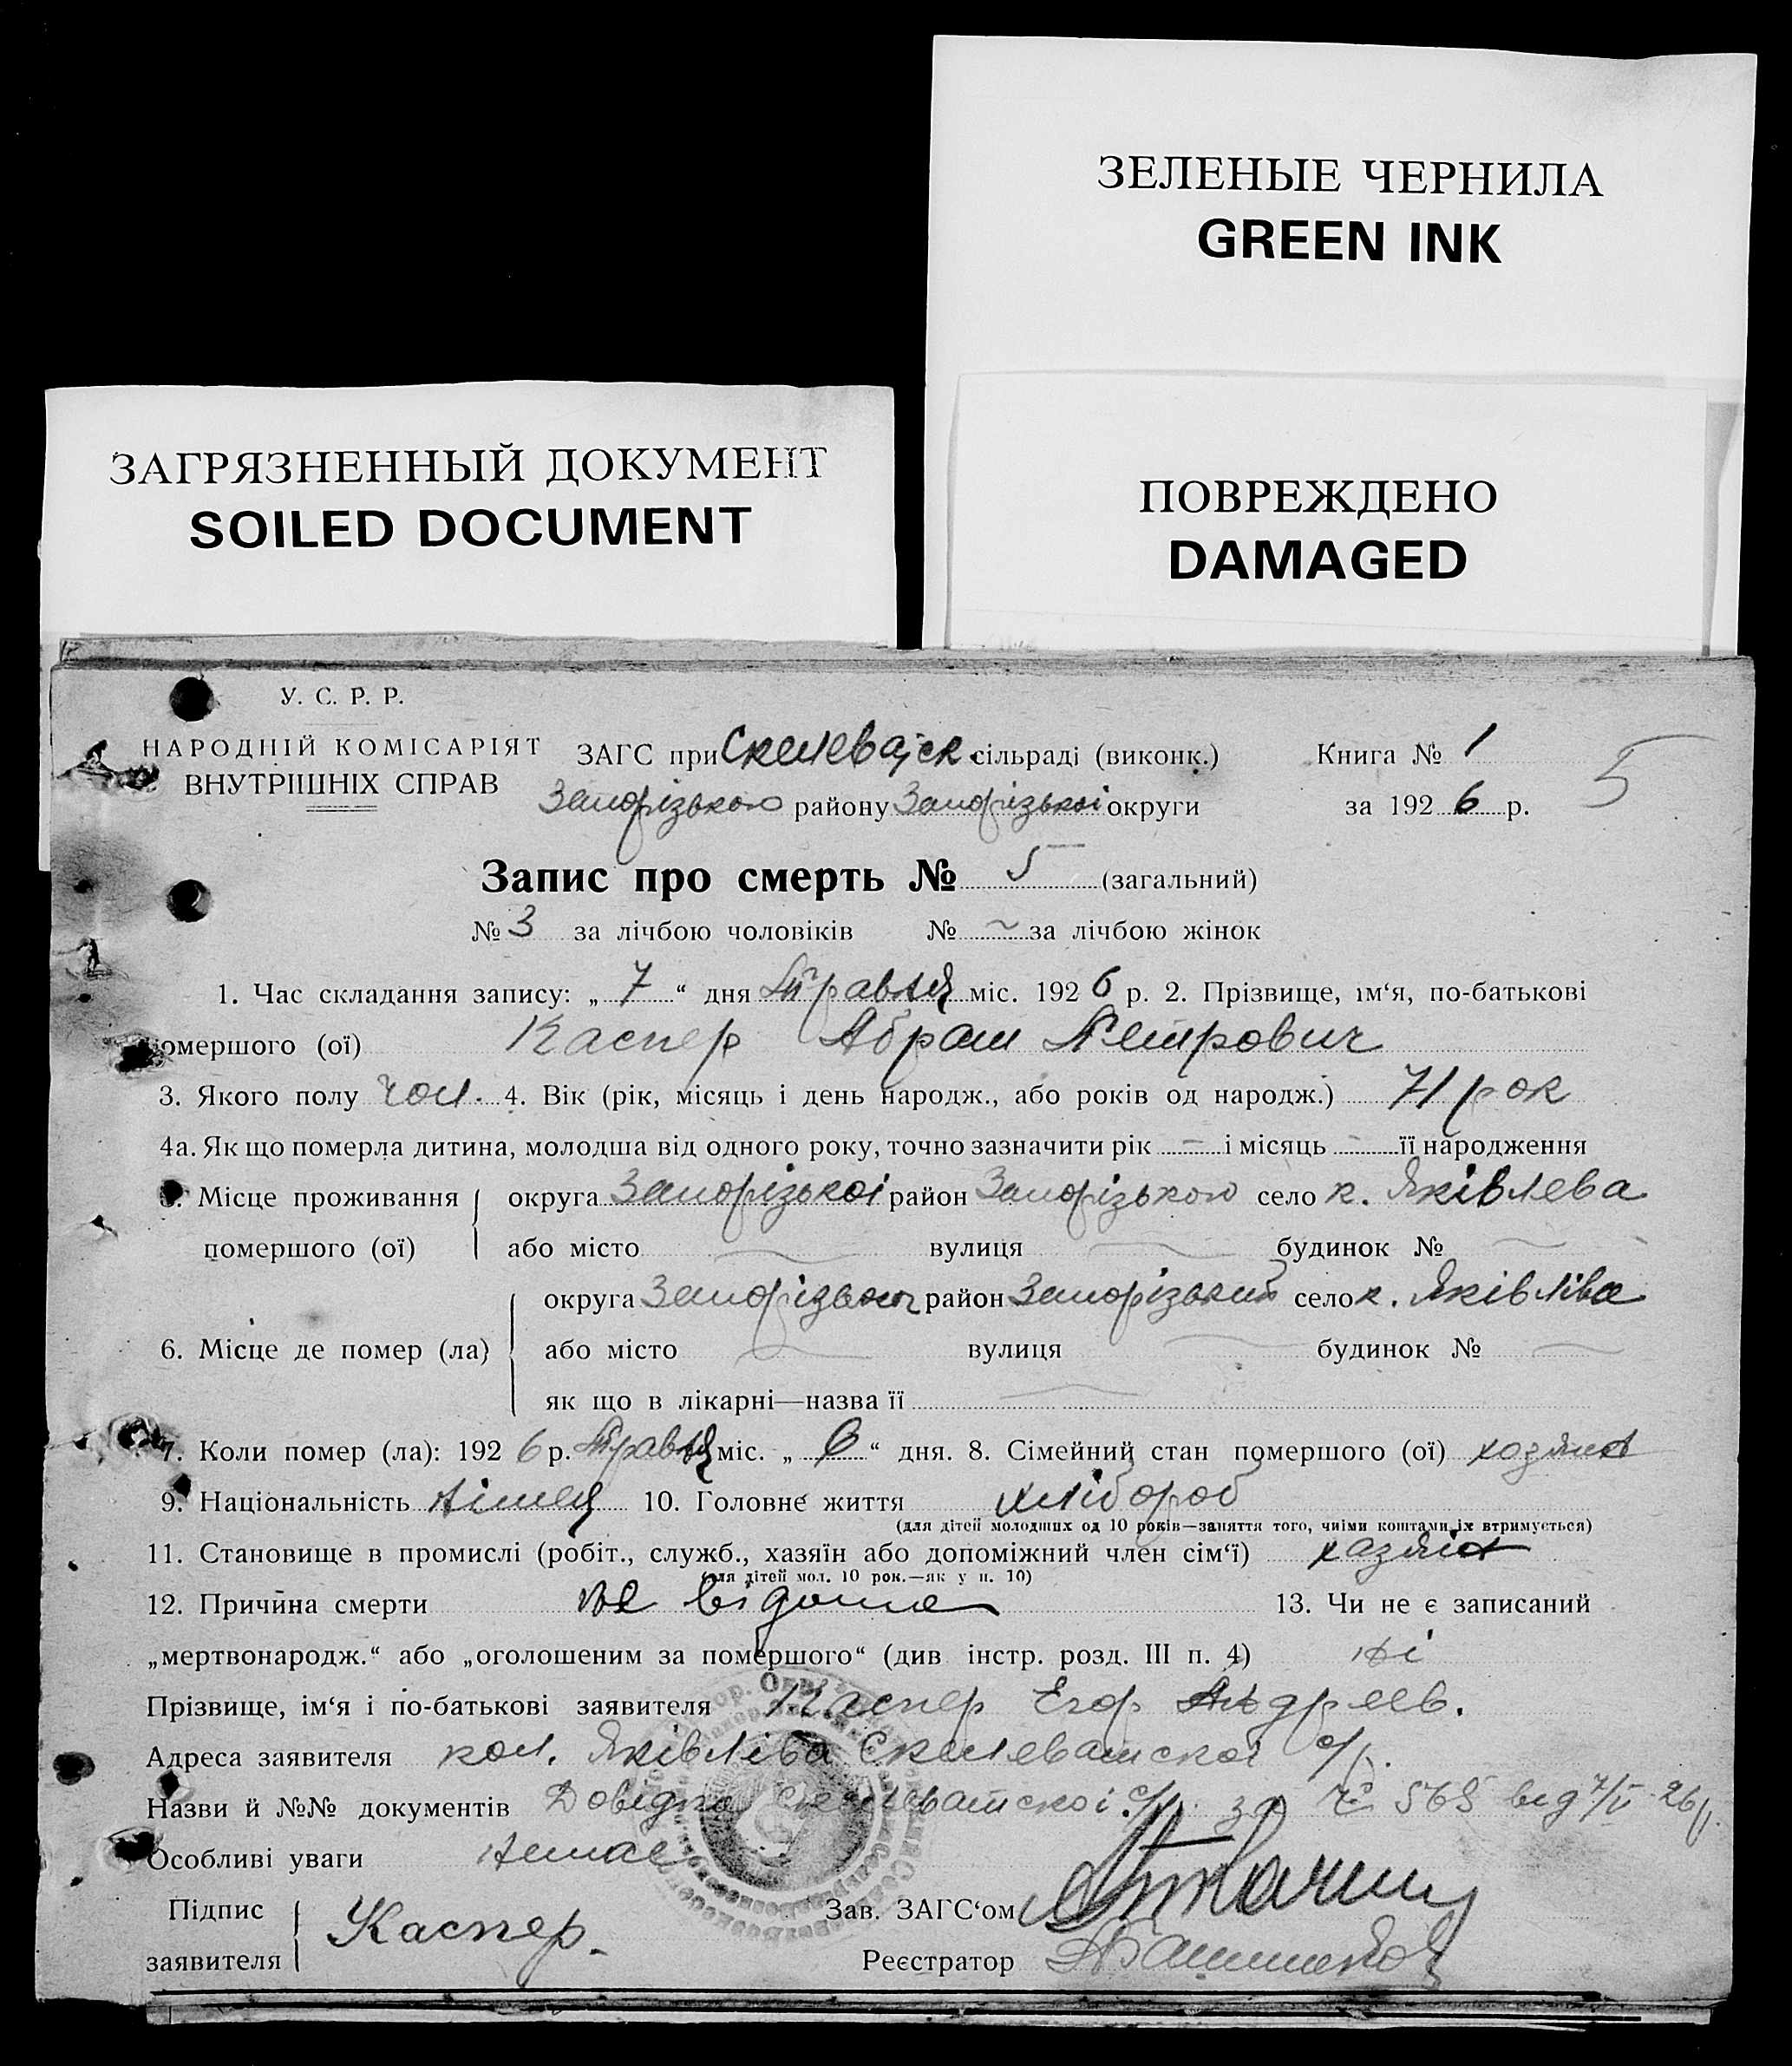 ЗЕЛЕНЫЕ ЧЕРНИЛА
GREEN INK
ЗАГРЯЗНЕННЫЙ ДОКУМЕНТ
SOILED DOCUMENT
ПОВРЕЖДЕНО
DAMAGED
У. С. Р. Р.
НАРОДНІЙ КОМІСАРІЯТ
ВНУТРІШНІХ СПРАВ
ЗАГС при сільраді (виконк.)
Книга № 1
5
Запорізького району Запорізької округи
за 192 6 р.
Запис про смерть № 5 (загальний)
№ 3 за лічбою чоловіків № ~ за лічбою жінок
1. Час складання запису: „ 7 “ дня Травця міс. 192 6 р. 2. Прізвище, ім‘я, по-батькові
помершого (ої) Каспер Абрам Петрович
3. Якого полу чол. 4. Вік (рік, місяць і день народж., або років од народж.) 71 рок
4а. Як що померла дитина, молодша від одного року, точно зазначити рік — і місяць — її народження
5. Місце проживання округа Запорізької район Запорізького село к. Яківлева
помершого (ої) або місто вулиця будинок №
округа район Запорізький село к. Яківліва
6. Місце де помер (ла) або місто вулиця будинок №
як що в лікарні—назва її
7. Коли помер (ла): 192 6 р. Травця міс. „ 6 “ дня. 8. Сімейний стан помершого (ої)
9. Національність німец 10. Головне життя хлібороб
(для дітей молодших од 10 років—заняття того, чиїми коштами їх втримується)
11. Становище в промислі (робіт., служб., хазяїн або допоміжний член сім‘ї)
(для дітей мол. 10 рок.—як у п. 10)
12. Причина смерти не відома 13. Чи не є записаний
„мертвонародж.“ або „оголошеним за помершого“ (див інстр. розд. III п. 4) ні
Прізвище, ім‘я і по-батькові заявителя Каспер Егор Андреев.
Адреса заявителя кол. Яківліва Скилеватской с/р.
Назви й №№ документів Довідка с/р. за № 565 від 7/V 26 р.
Особливі уваги немає
Підпис
заявителя Каспер.
Зав. ЗАГС‘ом
Реєстратор